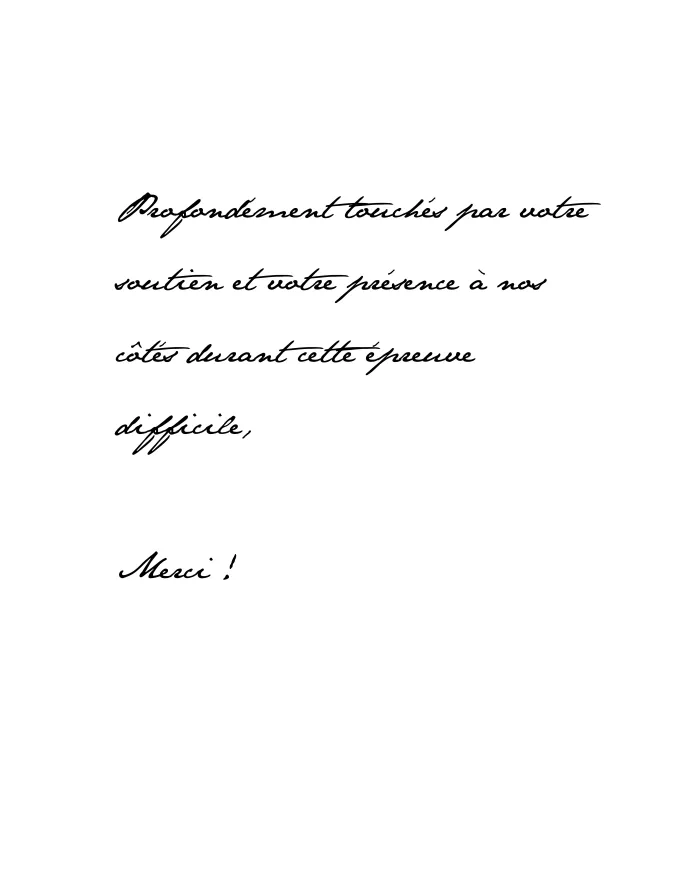 Profondément touchés par votre
soutien et votre présence à nos
côtés durant cette épreuve
difficile,
Merci !